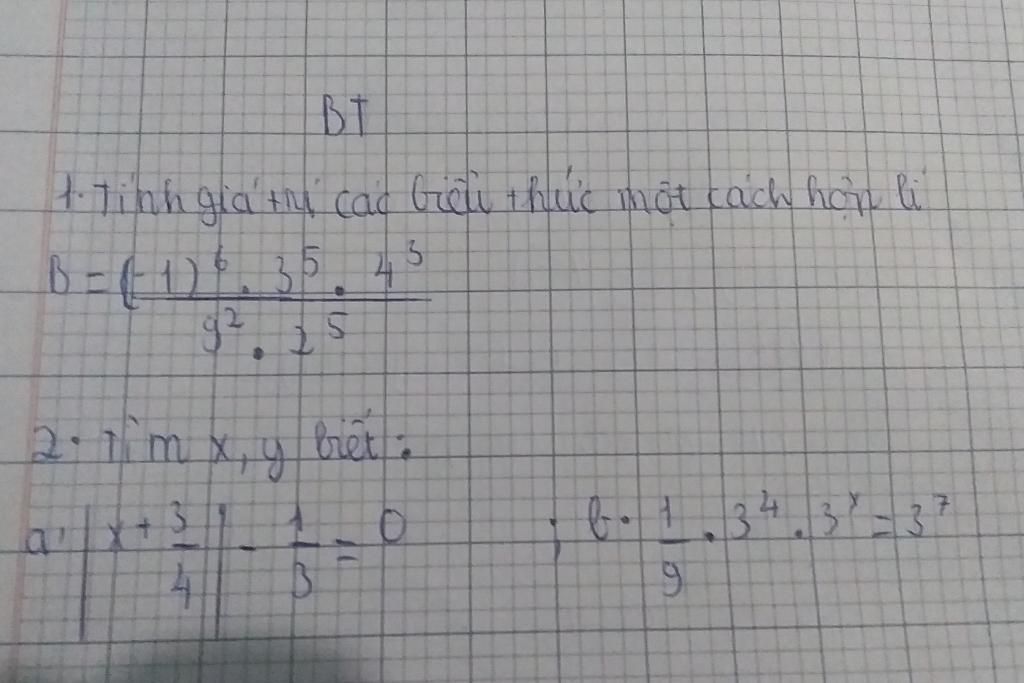 BT
1. Tính giá trị các biểu thức một cách hợp lí
B = (-1)⁶ . 3⁵ . 4³
9² . 2⁵
2. Tìm x, y biết :
a, |x + 3/4| - 1/3 = 0 ; b. 1/9 . 3⁴ . 3ˣ = 3⁷